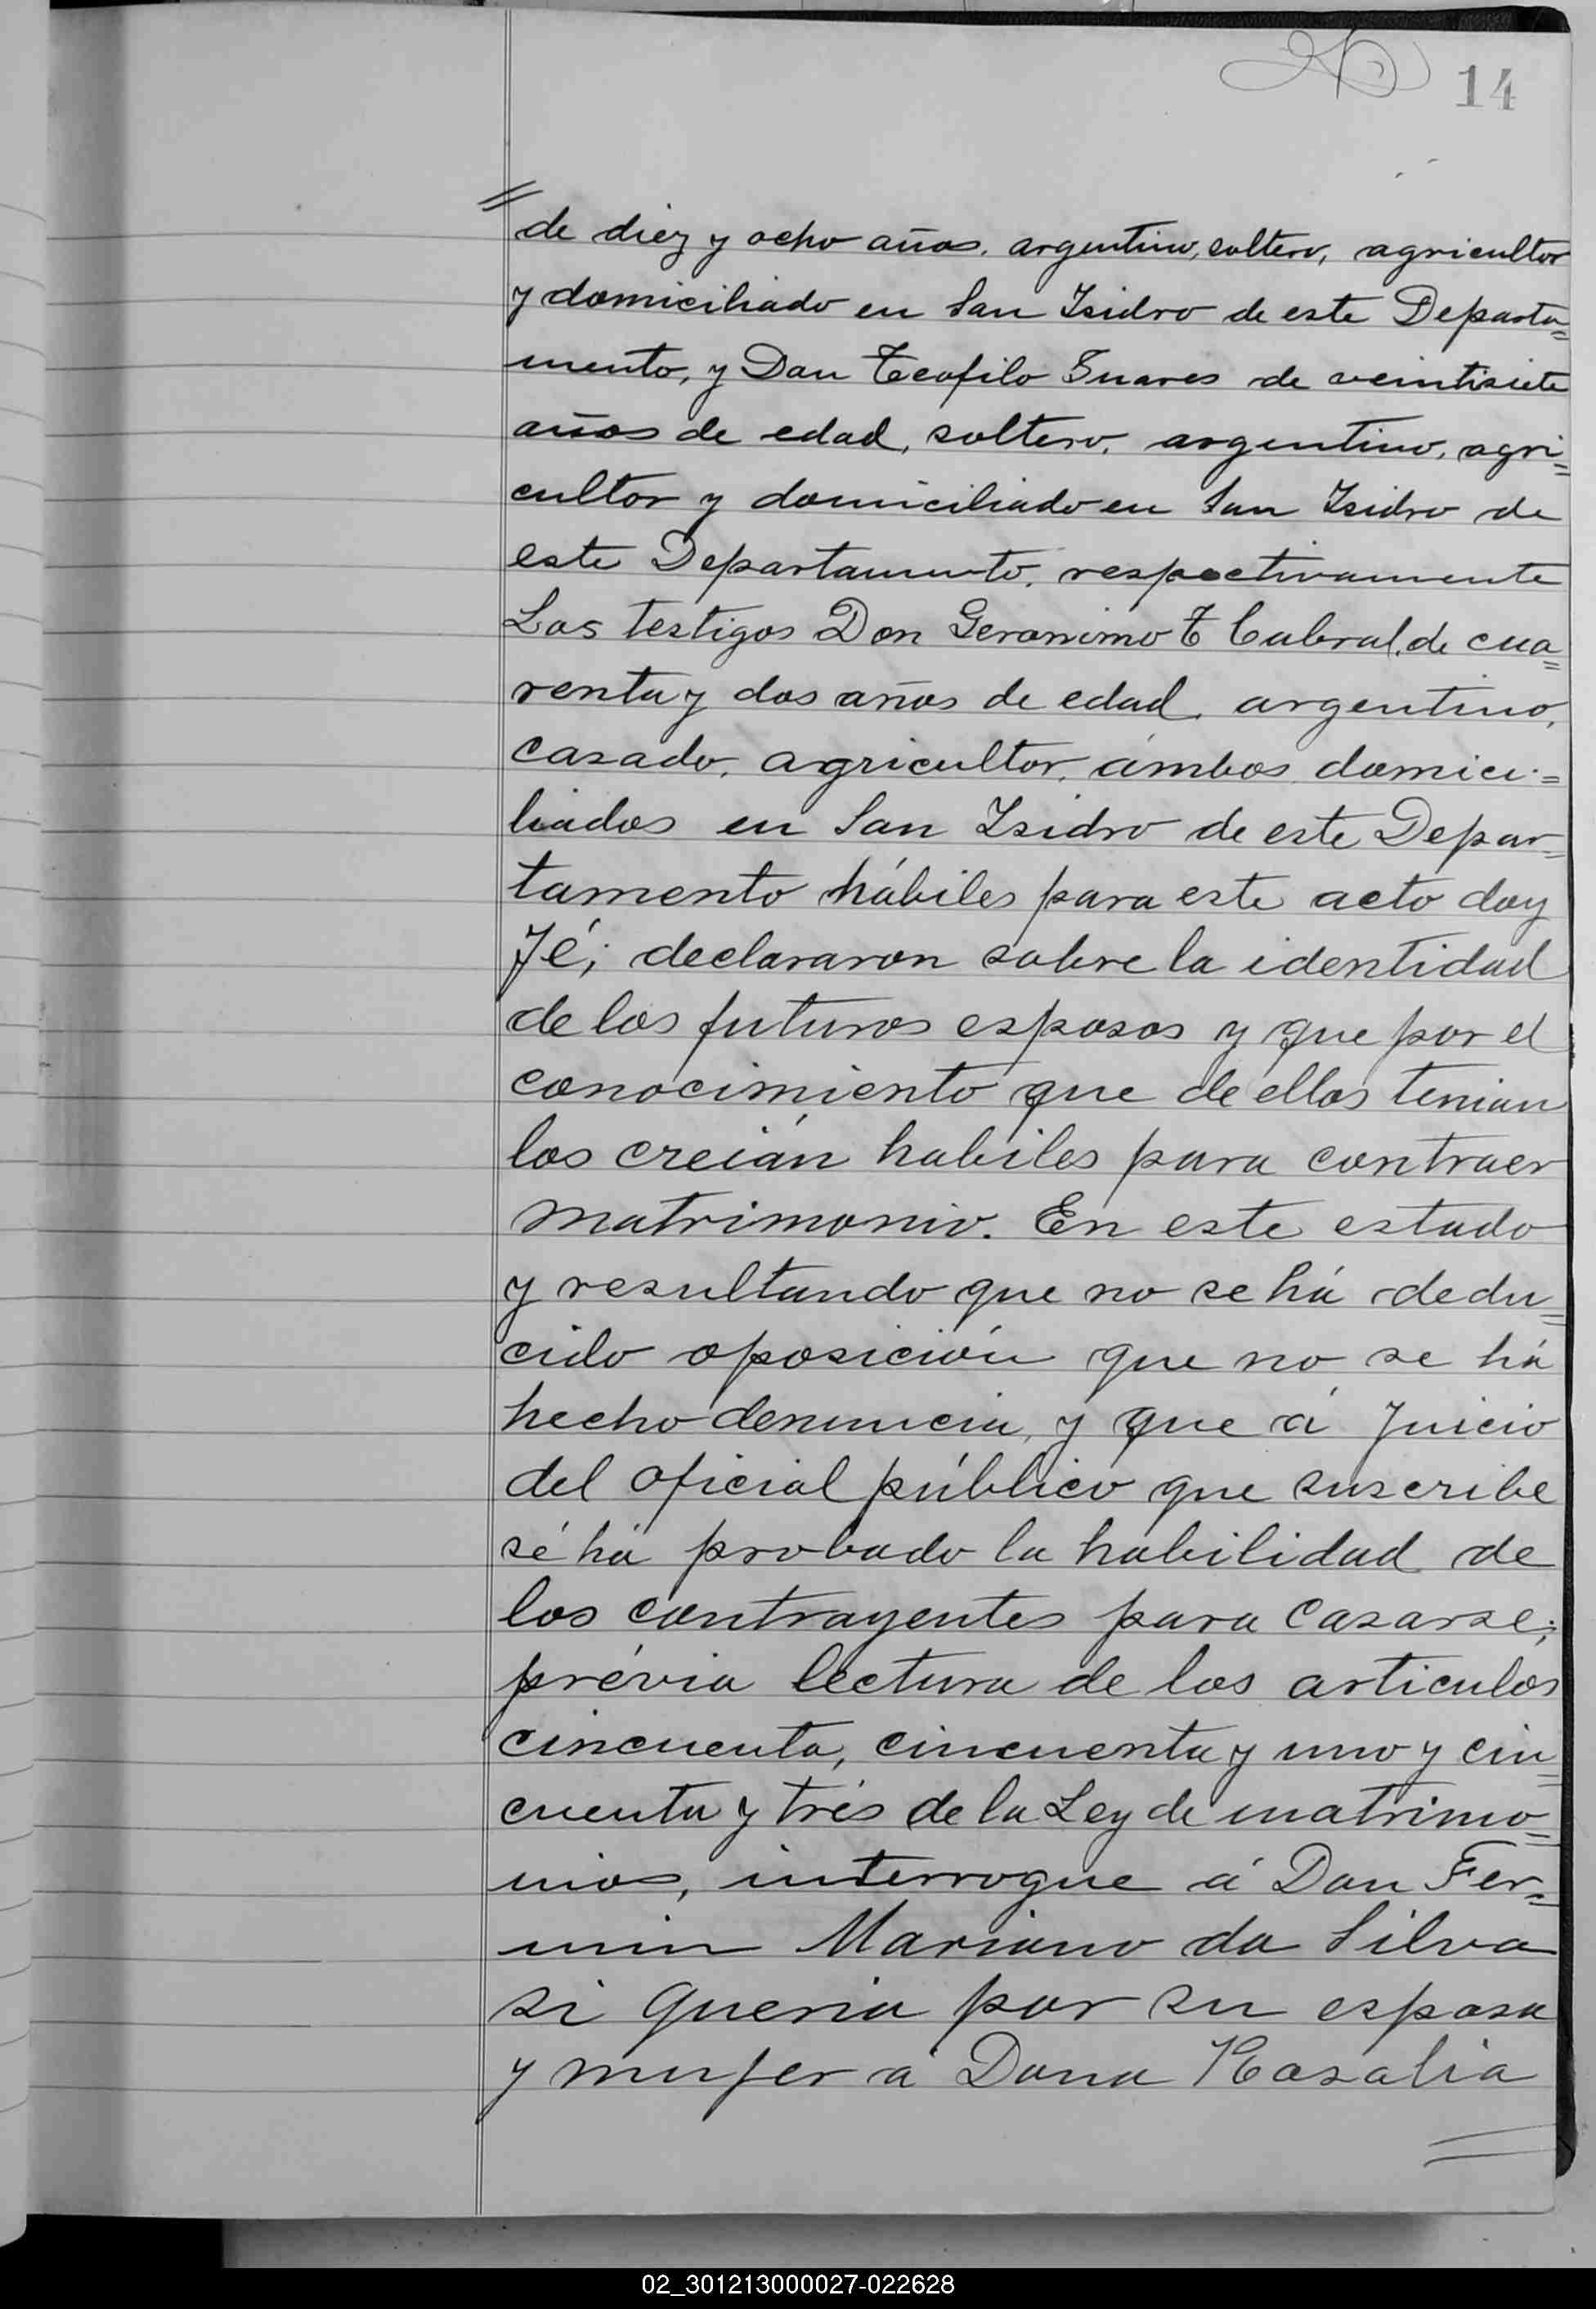 14
de diez y ocho años, argentino, soltero, agricultor
y domiciliado en San Isidro de este Departa=
mento, y Don Teofilo Suares de veintisiete
años de edad, soltero, argentino, agri=
cultor y domiciliado en San Isidro de
este Departamento, respectivamente
Los testigos Don Geronimo T Cabral, de cua=
renta y dos años de edad, argentino,
casado, agricultor, ámbos domici=
liados en San Isidro de este Depar=
tamento hábiles para este acto doy
fé; declararon sobre la identidad
de los futuros esposos y que por el
conocimiento que de ellos tenian
los creián habiles para contraer
matrimonio. En este estado
y resultando que no se há dedu=
cido oposición que no se há
hecho denuncia, y que á juicio
del oficial público que suscribe
sé há probado la habilidad de
los contrayentes para casarse;
prévia lectura de los articulos
cincuenta, cincuenta y uno y cin=
cuenta y trés de la Ley de matrimo=
nios, interrogue á Don Fer=
min Mariano da Silva
si queria por su esposa
y mujer a Dona Rosalia
02_301213000027-022628